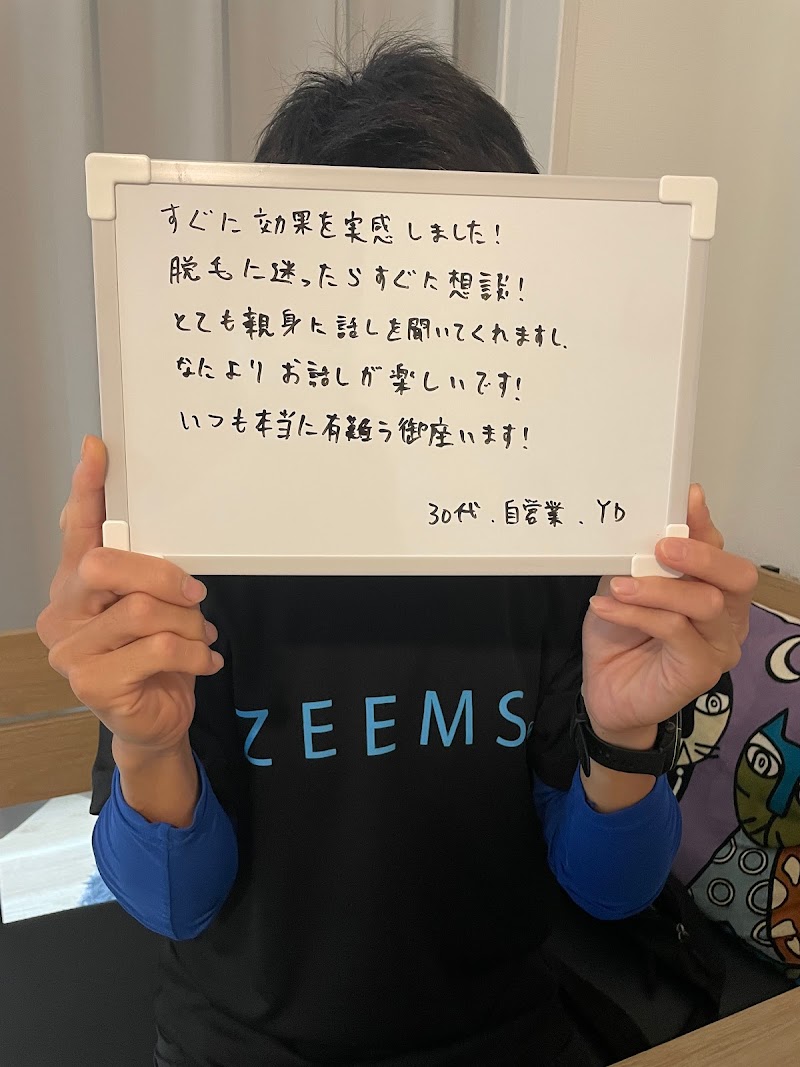 すぐに効果を実感しました!
脱毛に迷ったらすぐに想談!
とても親身に話しを聞いてくれますし、
なによりお話しが楽しいです!
いつも本当に有難う御座います!
30代、自営業、YD
ZEEMS